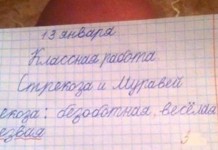 13 января
Классная работа
Стрекоза и Муравей
екоза: безоботная, весёлая
езвая